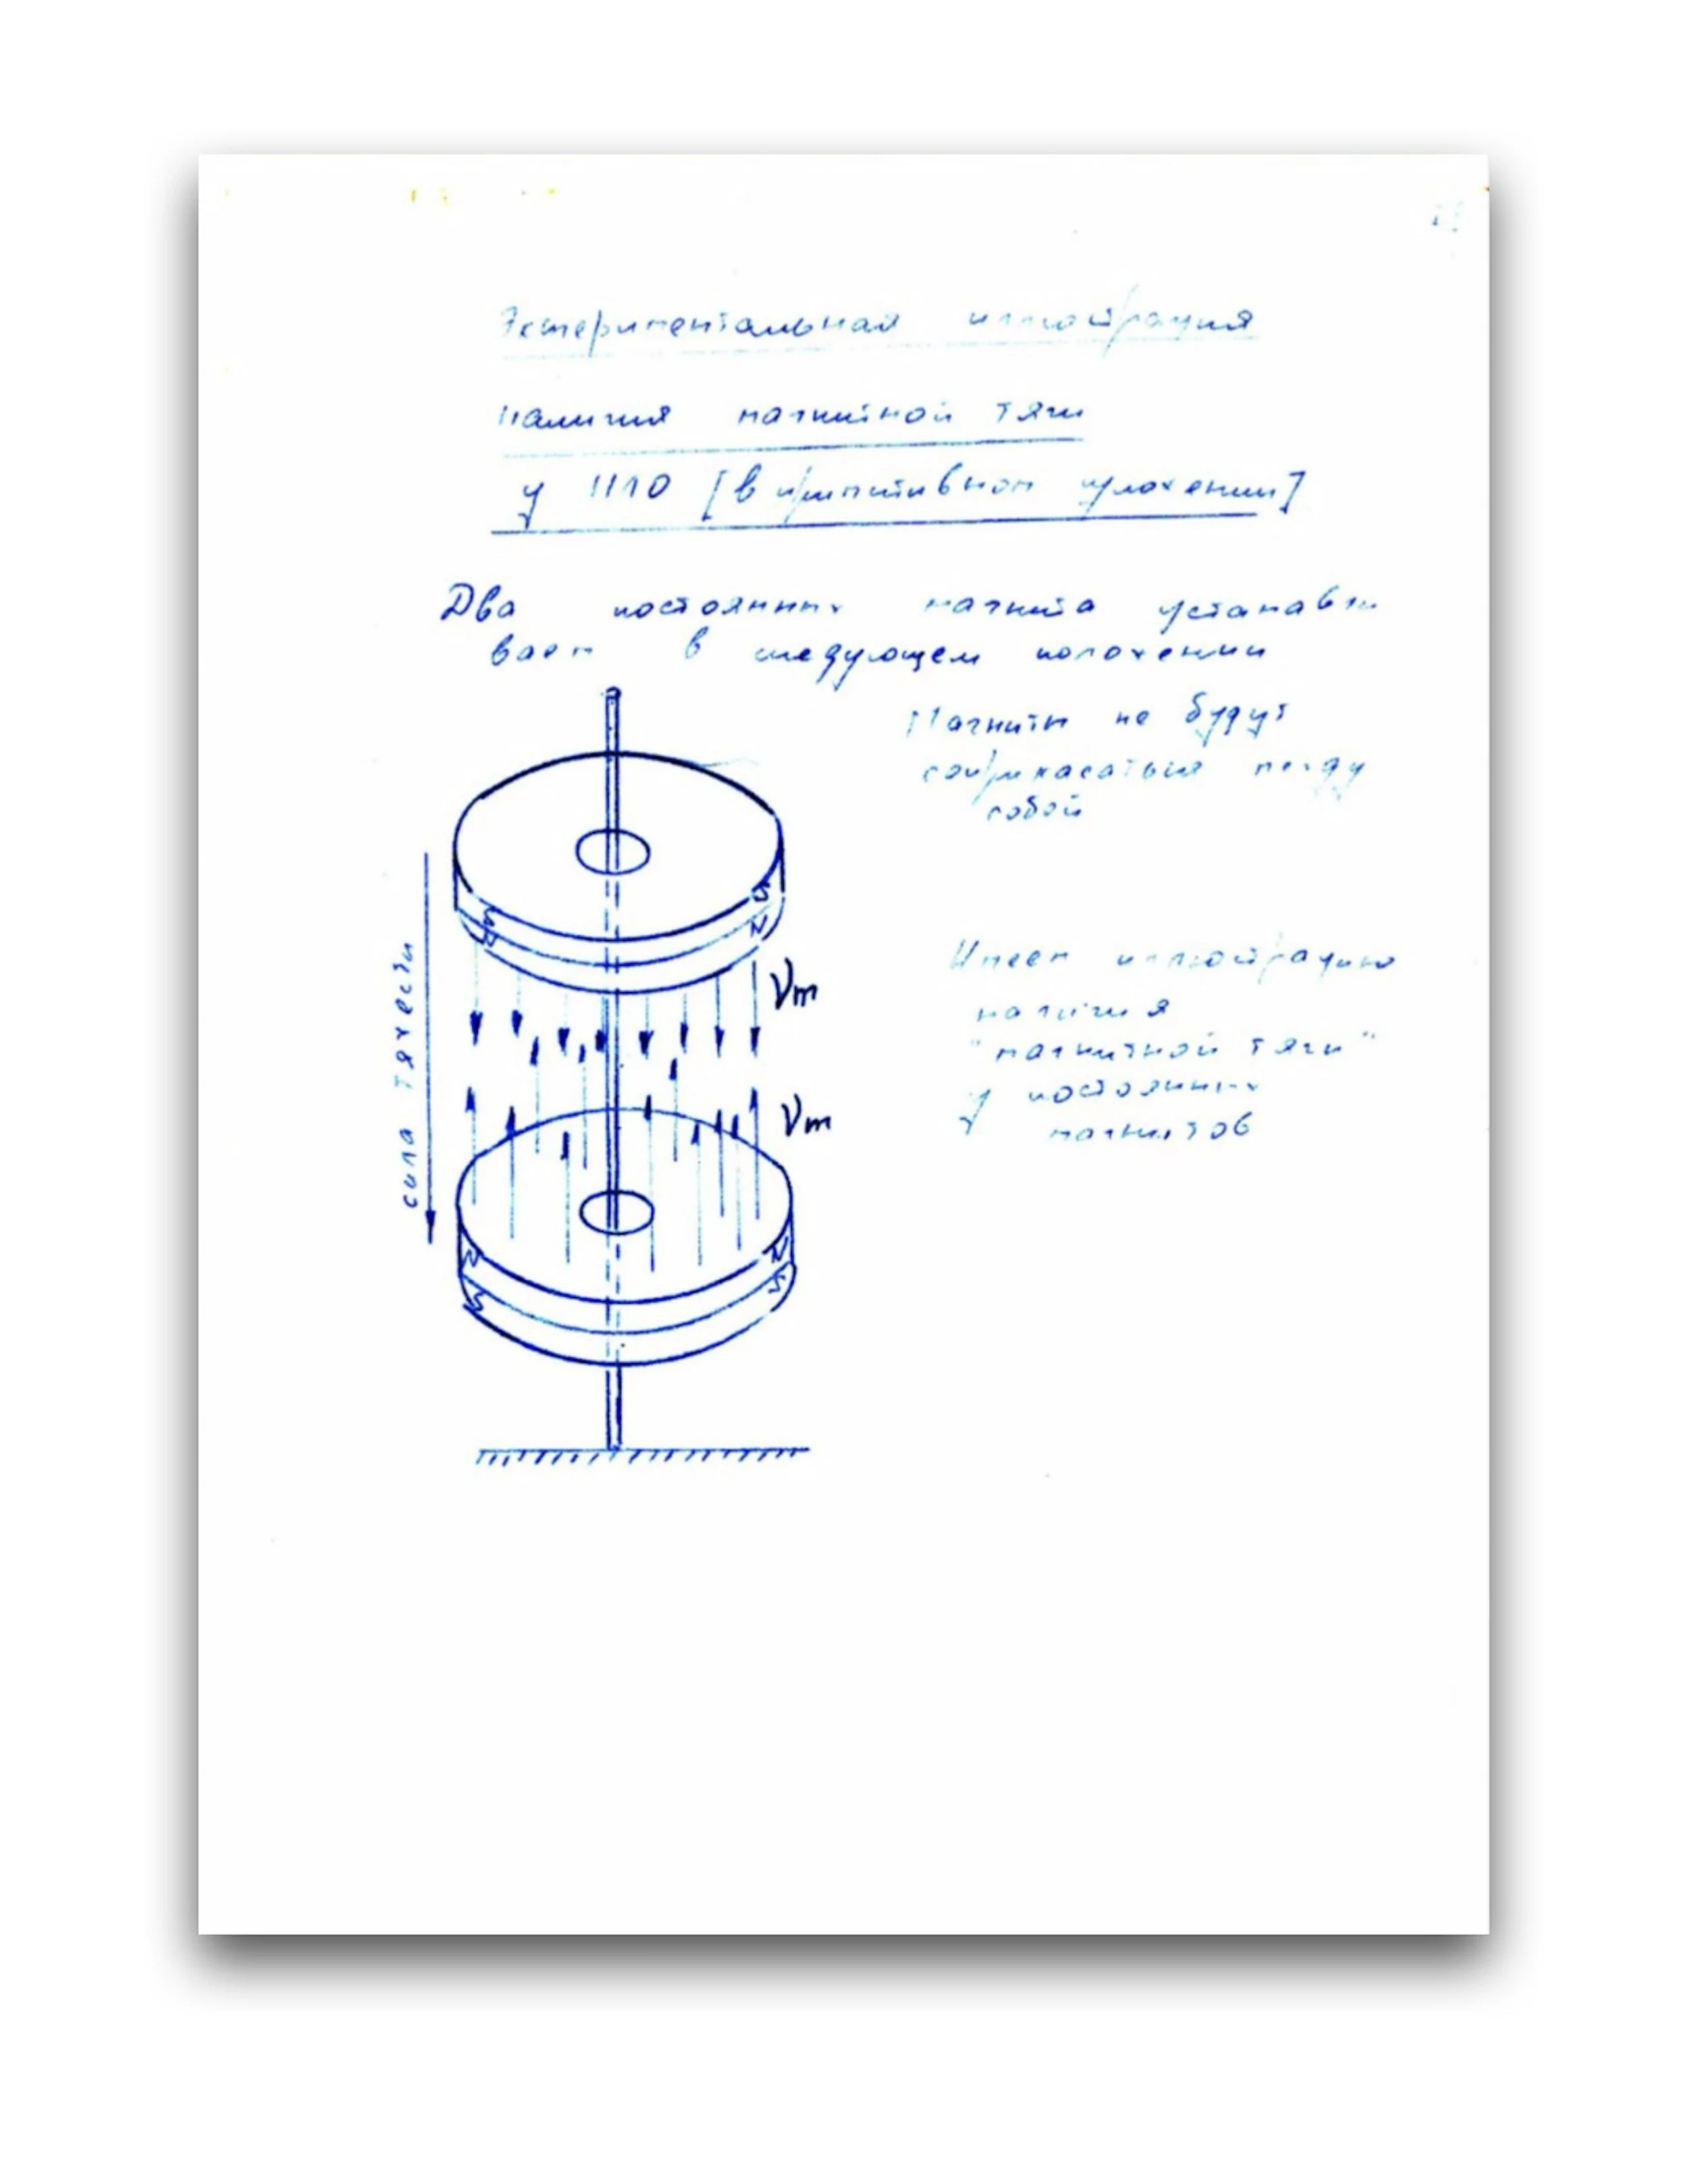 Экспериментальная иллюстрация
наличия магнитной тяги
у НЛО [в примитивном изложении]
Два постоянных магнита устанавли
ваем в следующем положении
Магниты не будут
соприкасаться между
собой
сила тяжести
S
N
S
N
Vm
Имеем иллюстрацию
наличия
"магнитной тяги"
у постоянных
магнитов
Vm
N
S
N
S